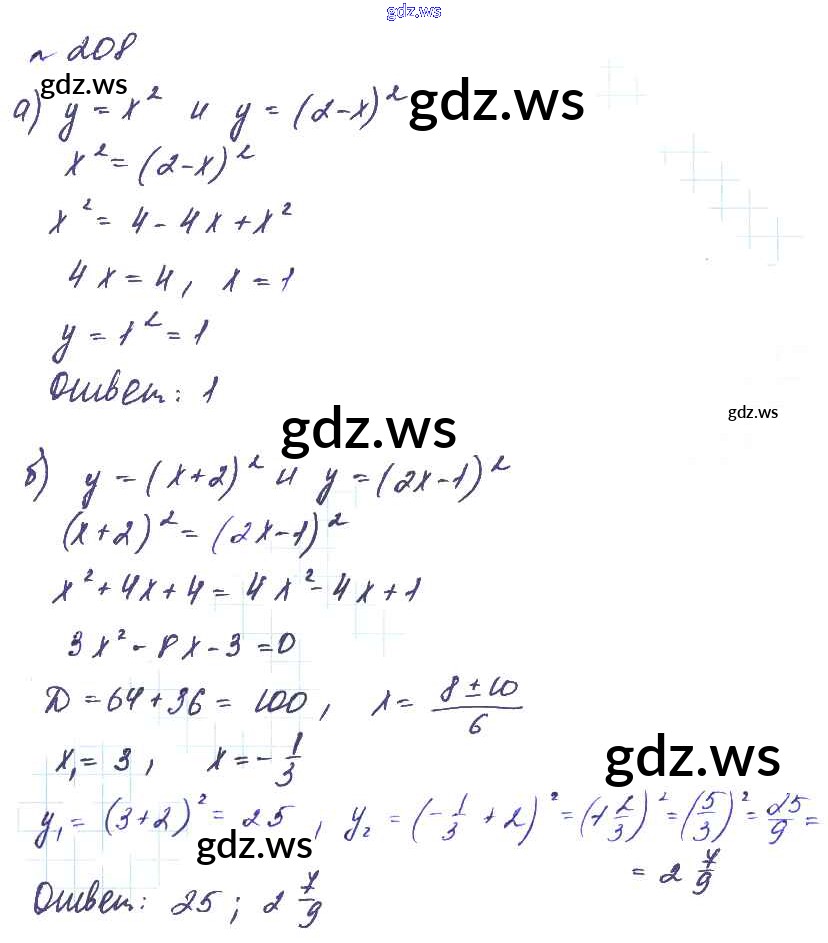 gdz.ws
№ 208
gdz.ws
а) y = x² и y = (2-x)² gdz.ws
x² = (2-x)²
x² = 4 - 4x + x²
4x = 4, x = 1
y = 1² = 1
Ответ: 1
gdz.ws
gdz.ws
б) y = (x+2)² и y = (2x-1)²
(x+2)² = (2x-1)²
x² + 4x + 4 = 4x² - 4x + 1
3x² - 8x - 3 = 0
D = 64 + 36 = 100, x = (8 ± 10)/6
x₁ = 3, x = - 1/3
gdz.ws
y₁ = (3+2)² = 25, y₂ = (- 1/3 + 2)² = (1 2/3)² = (5/3)² = 25/9 =
gdz.ws
= 2 7/9
Ответ: 25; 2 7/9